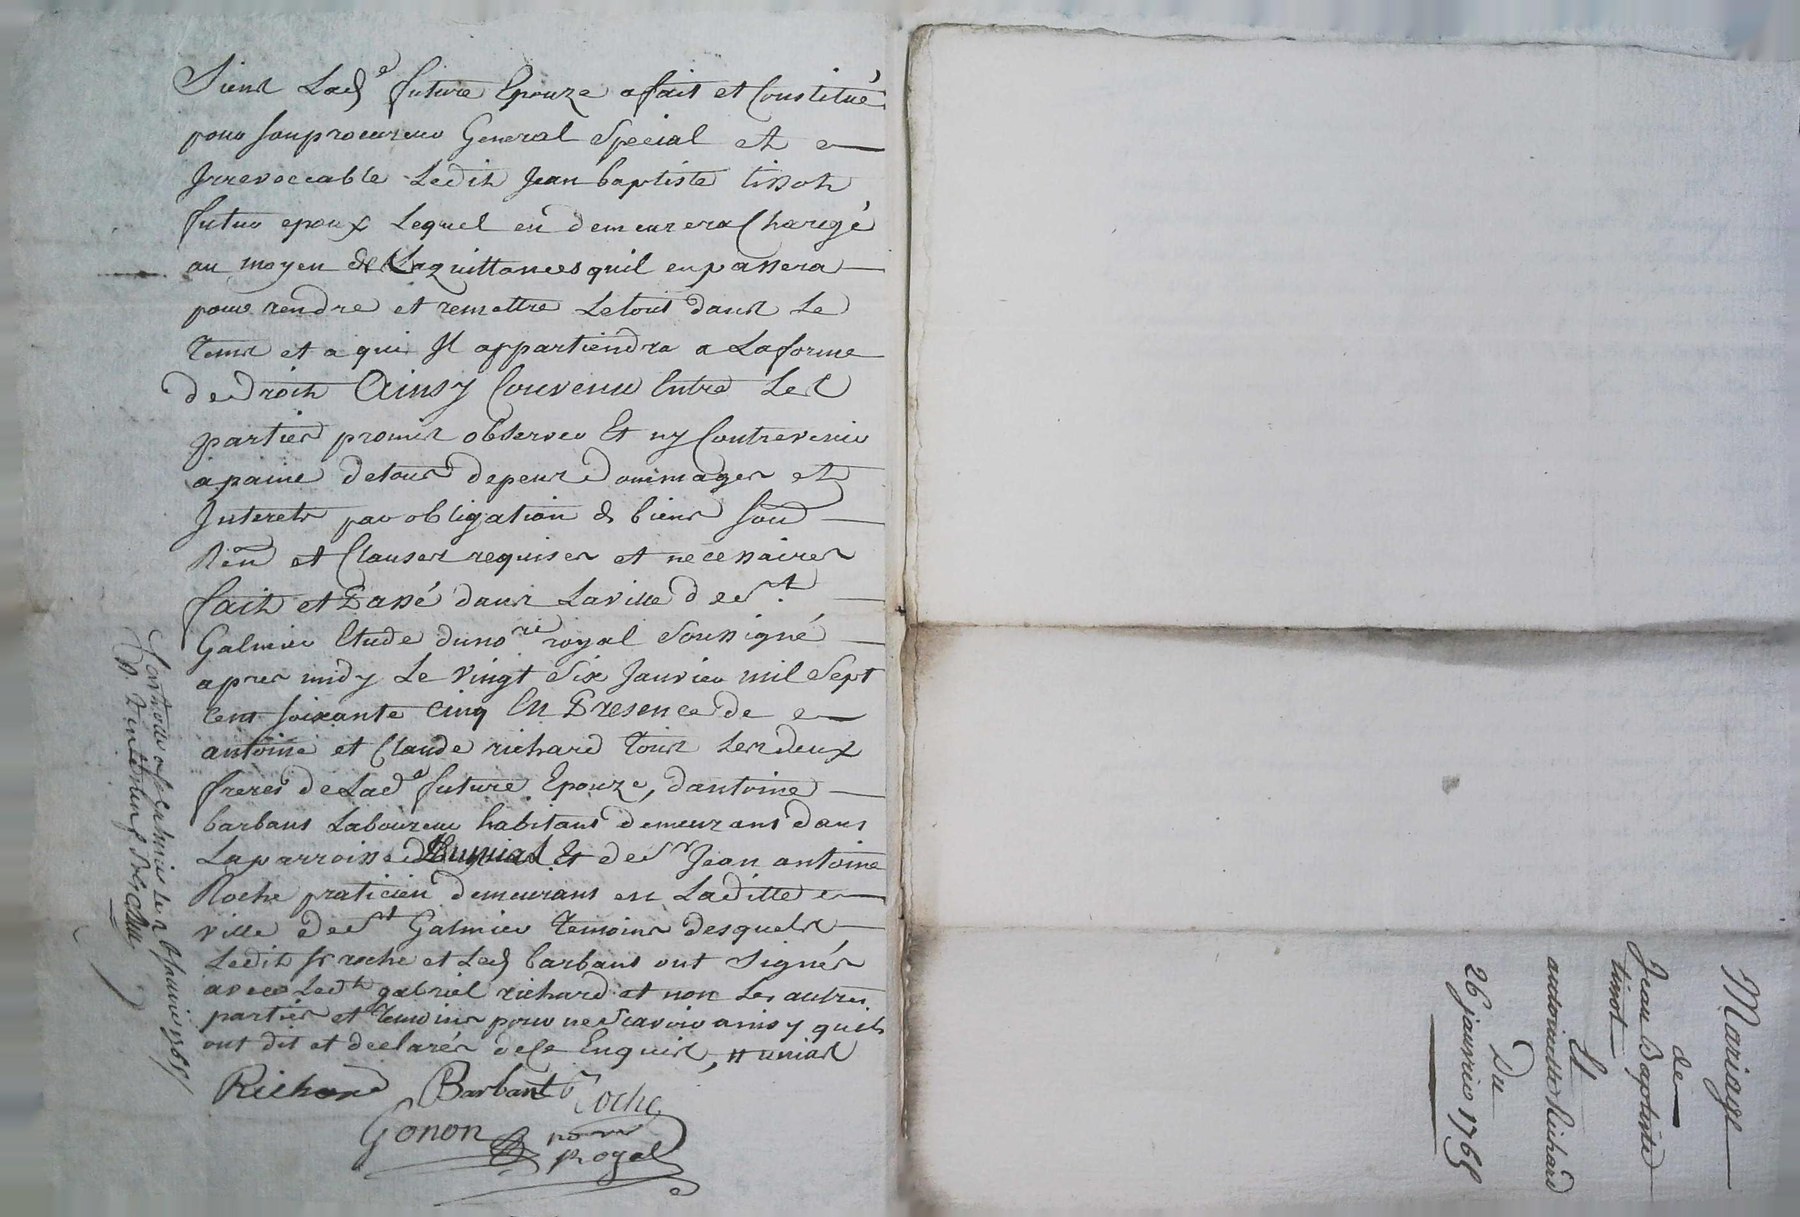 Siens Lad.e future Epouze a fait et Constitué
pour son procureur General Special et
Irrevoccable Ledit Jean baptiste tissot
futur epoux Lequel en demeurera Chargé
au moyen de Laquittances quil en passera
pour rendre et remettre Letout dans Le
tems et a qui Il appartiendra a Laforme
de Droit Ainsy Convenu Entre Les
parties promis observer Et ny Contrevenir
a paine detous depens Dommages et
Interets par obligation de biens sou
Ren et Clauses requises et necessaires
fait et Passé dans Laville de St
Galmier Etude du no.re royal soussigné
apres midy Le vingt Six Janvier mil Sept
Cent soixante Cinq En Presence de
antoine et Claude richard tous Les deux
freres de Lad.e future Epouze, dantoine
barbans Laboureur habitans demeurans dans
La parroisse de Et de Sr Jean antoine
Roche praticien demeurans en Laditte
ville de St Galmier temoins desquels
Ledit sr roche et Led barbans ont Signés
avec Led.t gabriel richard et non Les autres
parties et temoins pour ne Scavoir ainsy quils
ont dit et declarés de ce Enquis,
Richard Barbant Roche
Gonon no.re
royal
Controllé a St Galmier le 26 janvier 1765
Mariage
de
Jean Baptiste
tissot
Et
antoinette Richard
Du
26 janvier 1765